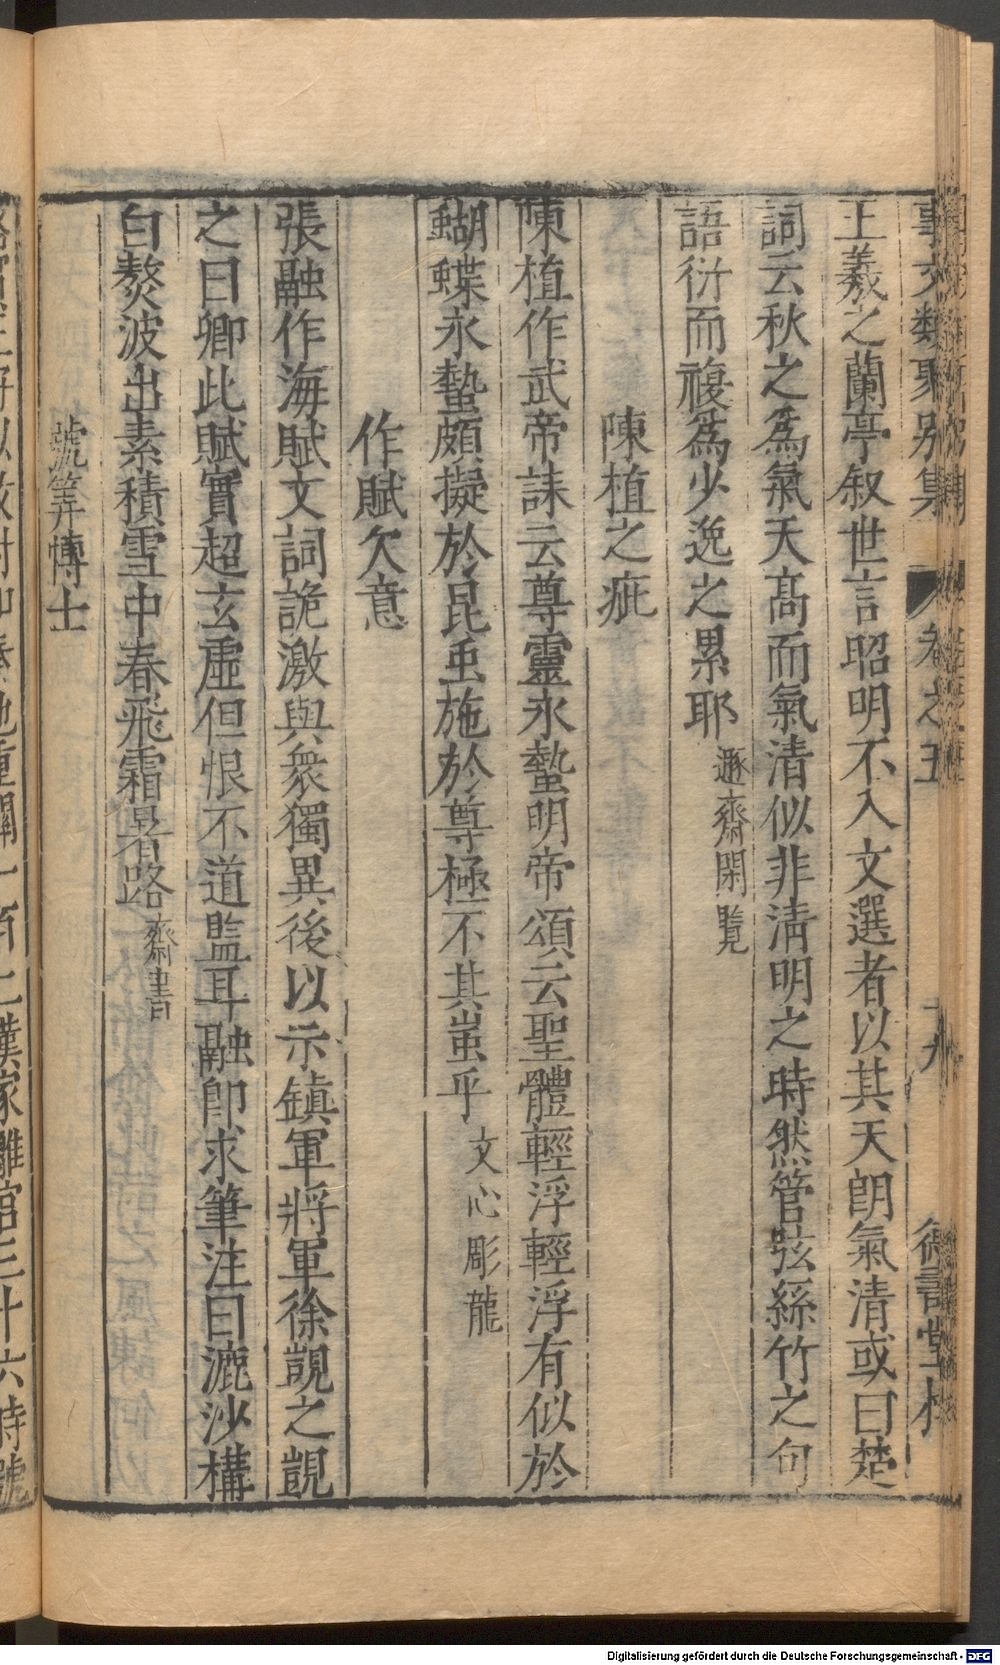 事文類聚別集 卷之五 十九 德壽堂梓
王羲之蘭亭叙世言昭明不入文選者以其天朗氣清或曰楚
詞云秋之爲氣天髙而氣清似非清明之時然管弦絲竹之句
語衍而複爲少逸之累耶 遯齋閑覽
陳植之疵
陳植作武帝誄云尊靈永蟄明帝頌云聖體輕浮輕浮有似於
蝴蝶永蟄頗擬於昆䖝施於尊極不其蚩乎 文心彫龍
作賦欠意
張融作海賦文詞詭激與衆獨異後以示鎮軍將軍徐覬之覬
之曰卿此賦實超玄虛但恨不道䀋耳融即求筆注曰漉沙構
白熬波出素積雪中春飛霜暑路 齋書
號筭博士
漢家離宫三十六時號
Digitalisierung gefördert durch die Deutsche Forschungsgemeinschaft - DFG